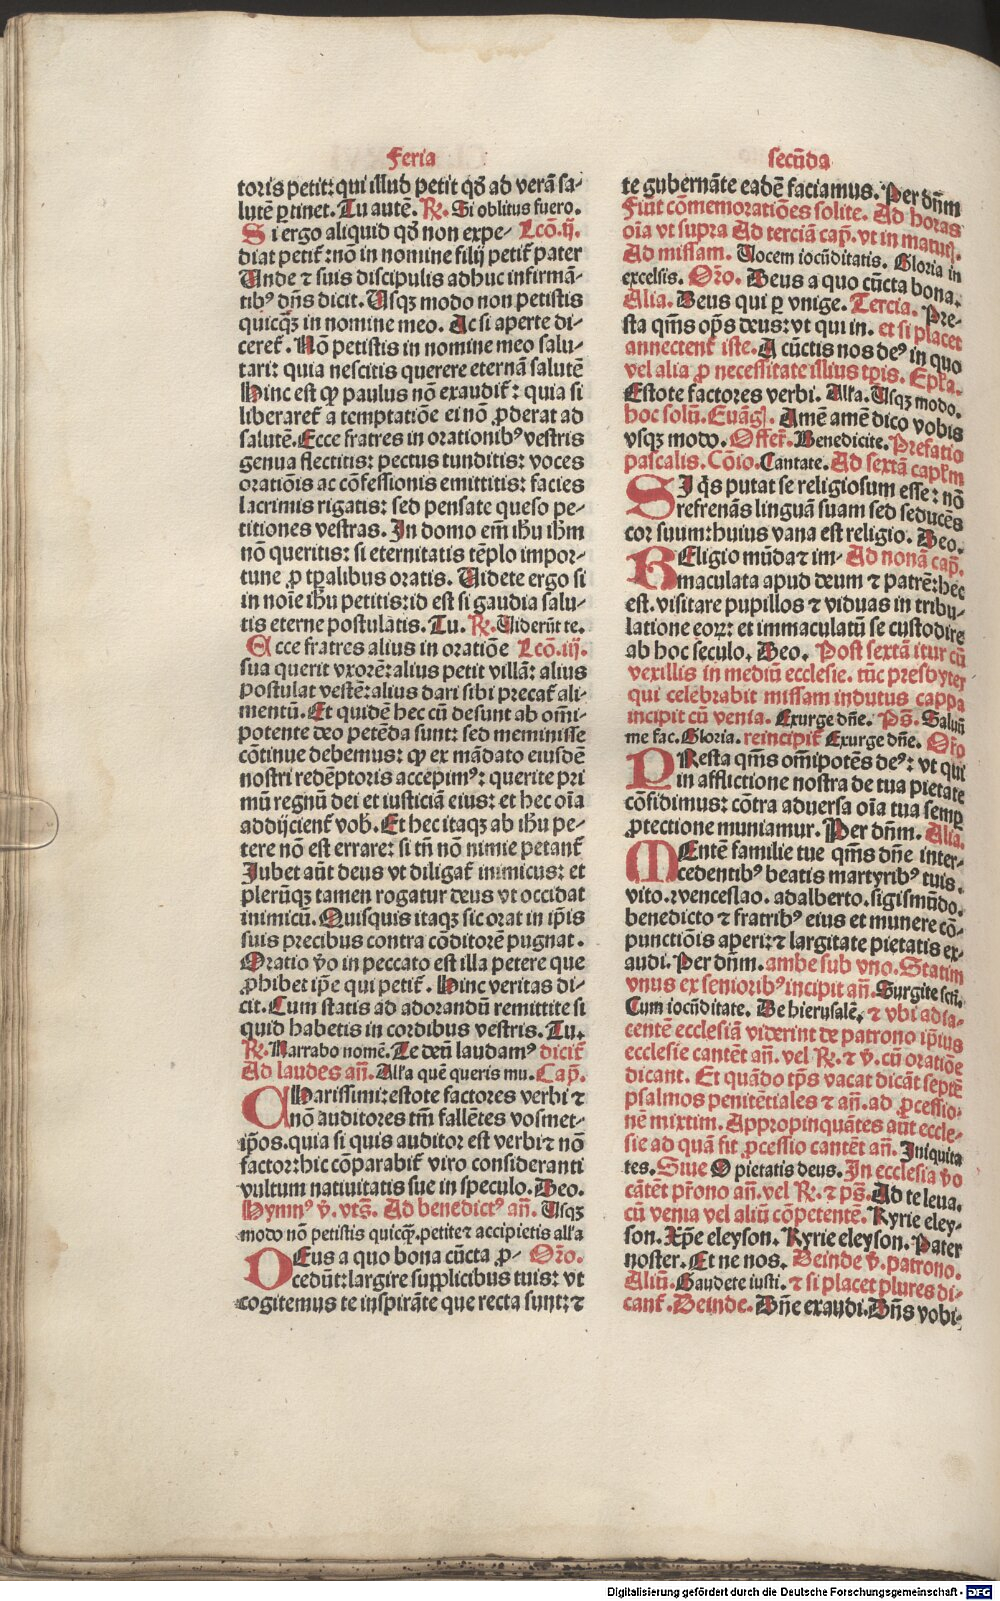 Feria
toris petit: qui illud petit qđ ad verā sa-
lutē ꝑtinet. Tu autē. ℟. Si oblitus fuero.
Si ergo aliquid qđ non expe- Lcō. ij.
diat petit᷑: nō in nomine filij petit᷑ pater
Unde ⁊ suis discipulis adhuc infirmā-
tibꝰ dn̄s dicit. Usqꝫ modo non petistis
quicqꝫ in nomine meo. Ac si aperte di-
ceret᷑. Nō petistis in nomine meo salu-
tari: quia nescitis querere eternā salutē
Hinc est ꝙ paulus nō exaudit᷑: quia si
liberaret᷑ a temptatiōe ei nō ꝓderat ad
salutē. Ecce fratres in orationibꝰ vestris
genua flectitis: pectus tunditis: voces
orationis ac cōfessionis emittitis: facies
lacrimis rigatis: sed pensate queso pe-
titiones vestras. In domo em̄ ihu ihm
nō queritis: si eternitatis tēplo impor-
tune ꝓ tꝑalibus oratis. Uidete ergo si
in noīe ihu petitis: id est si gaudia salu-
tis eterne postulatis. Tu. ℟. Uiderūt te.
Ecce fratres alius in oratiōe Lcō. iij.
sua querit vxorē: alius petit villā: alius
postulat vestē: alius dari sibi precat᷑ ali-
mentū. Et quidē hec cū desunt ab om̄i-
potente deo petēda sunt: sed meminisse
cōtinue debemus: ꝙ ex mādato eiusdē
nostri redēptoris accepimꝰ: querite pri
mū regnū dei et iusticiā eius: et hec oīa
addijcient᷑ vob̄. Et hec itaqꝫ ab ihu pe-
tere nō est errare: si tn̄ nō nimie petant᷑
Jubet aūt deus vt diligat᷑ inimicus: et
plerūqꝫ tamen rogatur deus vt occidat
inimicū. Quisquis itaqꝫ sic orat in ip̄is
suis precibus contra cōditorē pugnat.
Oratio v̄o in peccato est illa petere que
ꝓhibet ip̄e qui petit᷑. Hinc veritas di-
cit. Cum statis ad adorandū remittite si
quid habetis in cordibus vestris. Tu.
℟. Narrabo nomē. Te deū laudamꝰ dicit᷑
Ad laudes an̄. Alľa quē queris mu. Cap̄.
Charissimi: estote factores verbi ⁊
nō auditores tm̄ fallētes vosmet-
ip̄os. quia si quis auditor est verbi ⁊ nō
factor: hic cōparabit᷑ viro consideranti
vultum natiuitatis sue in speculo. Deo.
Hymnꝰ v̄. vts̄. Ad benedictꝰ an̄. Usqꝫ
modo nō petistis quicqꝫ. petite ⁊ accipietis alľa
Deus a quo bona cūcta ꝓ- Oro̅.
cedūt: largire supplicibus tuis: vt
cogitemus te inspirāte que recta sunt: ⁊
secūda
te gubernāte eadē faciamus. Per dn̄m
Fiūt cōmemoratiōes solite. Ad horas
oīa vt supra Ad terciā cap̄. vt in matuꝭ.
Ad missam. Uocem iocūditatis. Gloria in
excelsis. Oro̅. Deus a quo cūcta bona.
Alia. Deus qui ꝑ vnige. Tercia. Pre-
sta qm̄s op̄s deus: vt qui in. et si placet
annectent᷑ iste. A cūctis nos deꝰ in quo
vel alia ꝓ necessitate illius tꝑis. Epľa.
Estote factores verbi. Alľa. Usqꝫ modo.
hoc solū. Euāgꝭ. Amē amē dico vobis
vsqꝫ modo. Offert᷑. Benedicite. Prefatio
pascalis. Cōio. Cantate. Ad sextā caplm
Si q̄s putat se religiosum esse: nō
refrenās linguā suam sed seducēs
cor suum: huius vana est religio. Deo.
Religio mūda ⁊ im- Ad nonā cap̄.
maculata apud deum ⁊ patrē: hec
est. visitare pupillos ⁊ viduas in tribu-
latione eoꝝ: et immaculatū se custodire
ab hoc seculo. Deo. Post sextā itur cū
vexillis in mediū ecclesie. tūc presbyter
qui celebrabit missam indutus cappa
incipit cū venia. Exurge dn̄e. Ps̄. Saluū
me fac. Gloria. reincipit᷑ Exurge dn̄e. Oro̅
Presta qm̄s om̄ipotēs deꝰ: vt qui
in afflictione nostra de tua pietate
cōfidimus: cōtra aduersa oīa tua semꝑ
ꝓtectione muniamur. Per dn̄m. Alia.
Mentē familie tue qm̄s dn̄e inter-
cedentibꝰ beatis martyribꝰ tuis.
vito. venceslao. adalberto. sigismūdo.
benedicto ⁊ fratribꝰ eius et munere cō-
punctiōis aperi: ⁊ largitate pietatis ex-
audi. Per dn̄m. ambe sub vno. Statim
vnus ex senioribꝰ incipit an̄. Surgite sct̄i.
Cum iocūditate. De hierusalē. ⁊ vbi adia-
centē ecclesiā viderint de patrono ip̄ius
ecclesie cantēt an̄. vel ℟. ⁊ v̄. cū oratiōe
dicant. Et quādo tp̄s vacat dicāt septē
psalmos penitētiales ⁊ an̄. ad ꝓcessio-
nē mixtim. Appropinquātes aūt eccle-
sie ad quā fit ꝓcessio cantēt an̄. Iniquita
tes. Siue O pietatis deus. In ecclesia v̄o
cātēt pr̄ono an̄. vel ℟. ⁊ ps̄. Ad te leua.
cū venia vel aliū cōpetentē. Kyrie eley-
son. Xp̄e eleyson. Kyrie eleyson. Pater
noster. Et ne nos. Deinde v̄. patrono.
Aliū. Gaudete iusti. ⁊ si placet plures di-
cant᷑. Deinde. Dn̄e exaudi. Dn̄s vobi-
Digitalisierung gefördert durch die Deutsche Forschungsgemeinschaft - DFG